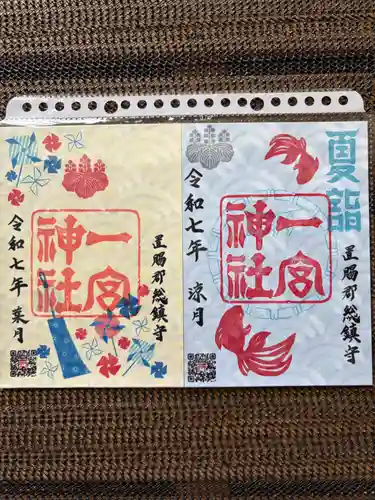 置賜郡総鎮守
一宮
神社
令和七年 葉月
夏詣
置賜郡総鎮守
一宮
神社
令和七年 涼月